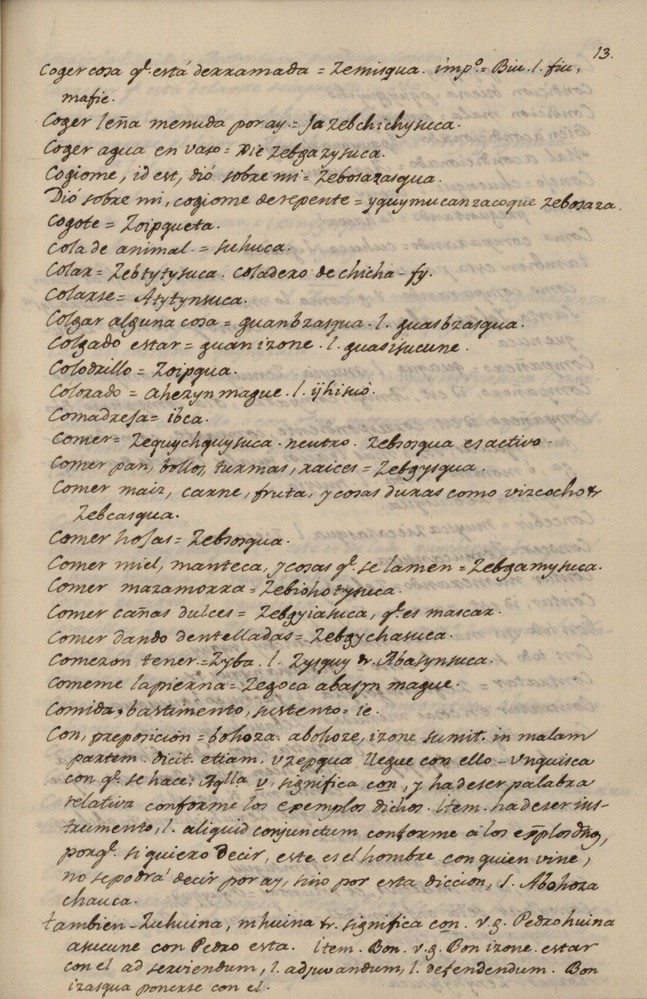 13.
Coger cosa q.e está derramada = Zemisqua. imp.o = Biu. l. fiu,
mafie.
Coger leña menuda por ay. = Ja zebchichysuca.
Coger agua en vaso = xie zebgazysuca.
Cogiome, id est, dió sobre mi = Zebosazasqua.
Dió sobre mi, cogiome derepente = yquymucanzacoque zebosaza.
Cogote = Zoipqueta.
Cola de animal. = suhuca.
Colar = Zebtytysuca. Coladero de chicha - fy.
Colarse = Atytynsuca.
Colgar alguna cosa = guanbzasqua. l. guasbzasqua.
Colgado estar = guan izone. l. guasisucune.
Colodrillo = Zoipqua.
Colorado = ahezyn mague. l.
Comadreja = ibca.
Comer = Zequychquysuca. neutro. Zebsosqua es activo.
Comer pan, bollos, turmas, raices = Zebgysqua.
Comer maiz, carne, fruta, y cosas duras como vizcocho &
Zebcasqua.
Comer hojas = Zebsosqua.
Comer miel, manteca, y cosas q.e se lamen = Zebgamysuca.
Comer mazamorra = Zebiohotysuca.
Comer cañas dulces = Zebgyiasuca, q.e es mascar.
Comer dando dentelladas = Zebgychasuca.
Comezon tener = Zyba. l. Zysquy &. Abasynsuca.
Comeme la pierna = Zegoca abasyn mague.
Comida, bastimento, sustento = ie.
Con, preposicion = bohoza. abohoze, izone sumit. in malam
partem. dicit. etiam. vzepqua llegue con ello - vnquisca
con q.e se hace: Aqlla v, significa con, y ha de ser palabra
relativa conforme los exemplos dichos. Item. ha de ser ins-
trumento, l. aliquid conjunctum conforme a los
porq.e si quiero decir, este es el hombre con quien vine,
no se podrá decir por ay, sino por esta diccion, l. Abohoza
chauca.
tambien - Zuhuina, mhuina &. significa con. v.g. Pedro huina
asucune con Pedro esta. Item. Bon. v.g. Bon izone. estar
con el ad serviendum, l. adjuvandum, l. defendendum. Bon
izasqua ponerse con el.